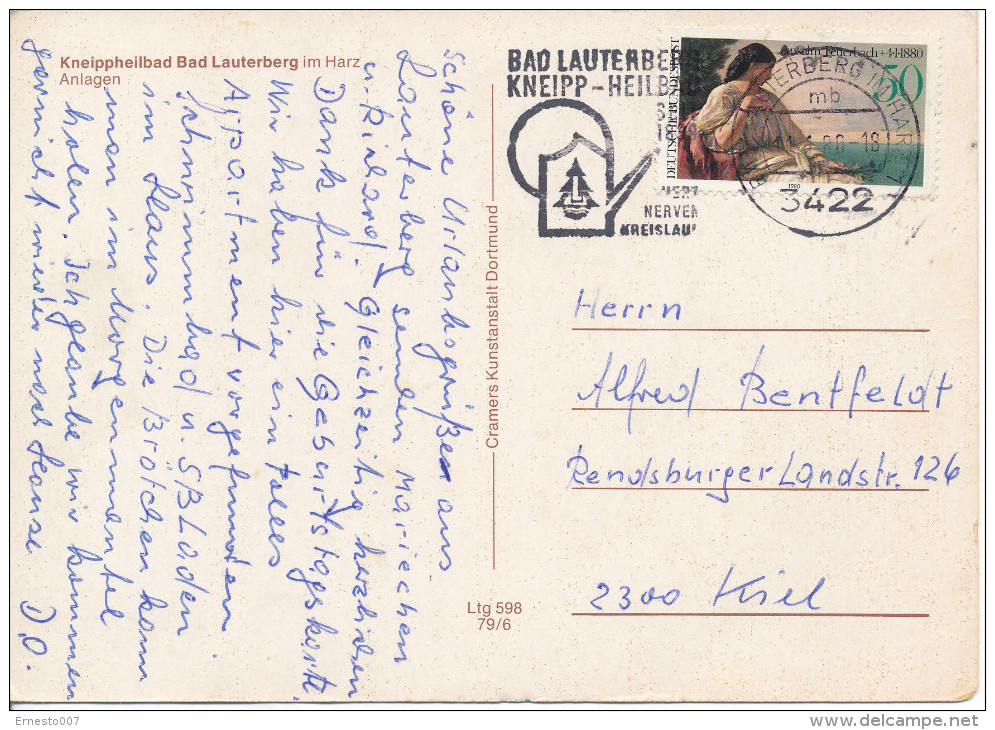 Kneippheilbad Bad Lauterberg im Harz
Anlagen
Schöne Urlaubsgrüße aus
Lauterberg senden Mariechen
u. Richard! Gleichzeitig herzlichen
Dank für die Geburtstagskarte.
Wir haben hier ein tolles
Appartment vorgefunden
Schwimmbad u. SBLaden
im Haus. Die Brötchen kann
man im Morgenmantel
holen. Ich glaube wir kommen
gar nicht wieder nach Hause D.O.
Cramers Kunstanstalt Dortmund
Ltg 598
79/6
BAD LAUTERBE
KNEIPP-HEILB
HERZ
NERVEN
KREISLAU
Anselm Feuerbach +4.1.1880
50
DEUTSCHE BUNDESPOST
1980
LAUTERBERG IM HARZ 1
mb
-18
3422
Herrn
Alfred Bentfeldt
Rendsburger Landstr. 126
2300 Kiel
Ernesto007
delcampe.net